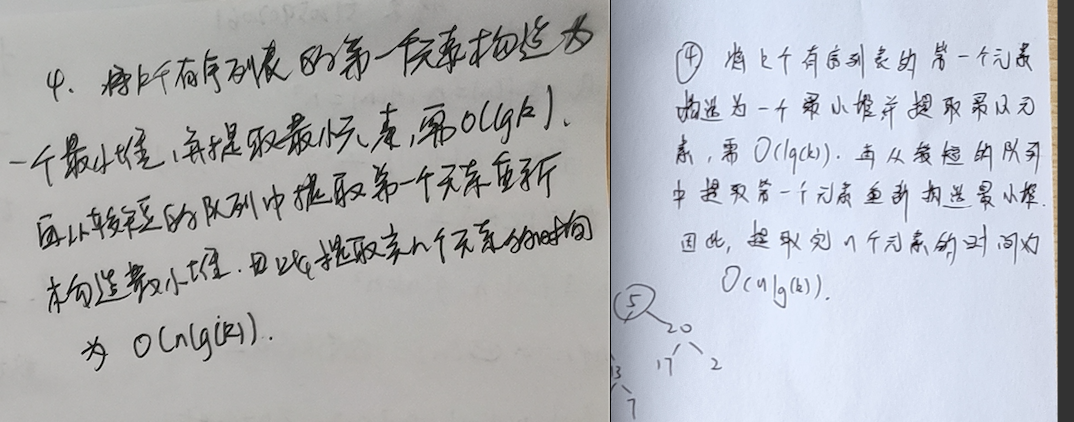 4. 将k个有序列表的第一个元素构造为
一个最小堆,并提取最小元素,需O(lgk).
再从较短的队列中提取第一个元素重新
构造最小堆.因此,提取完n个元素的时间
为 O(nlg(k)).
④ 将k个有序列表的第一个元素
构造为一个最小堆并提取最小元
素,需O(lg(k)).再从较短的队列
中提取第一个元素重新构造最小堆.
因此,提取完n个元素的时间为
O(nlg(k)).
5
20
17 2
13
7